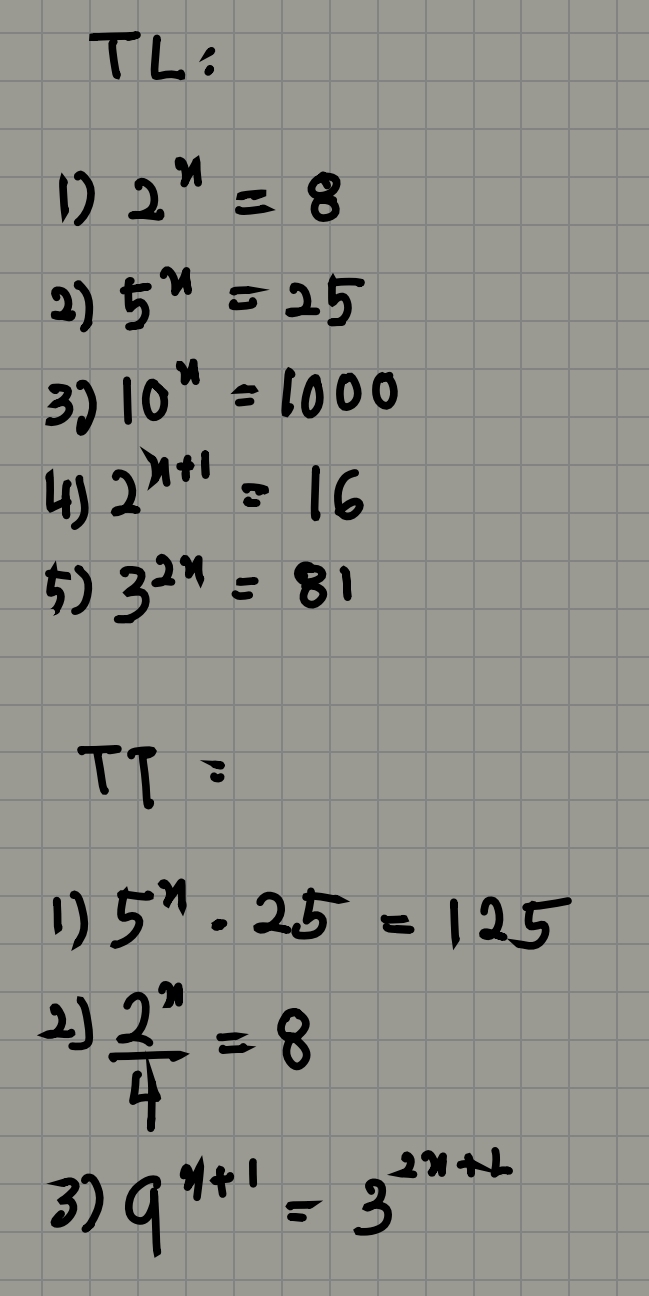 TL:
1) 2^x = 8
2) 5^x = 25
3) 10^x = 1000
4) 2^{x+1} = 16
5) 3^{2x} = 81
TT =
1) 5^x . 25 = 125
2) 2^x/4 = 8
3) 9^{x+1} = 3^{2x+2}